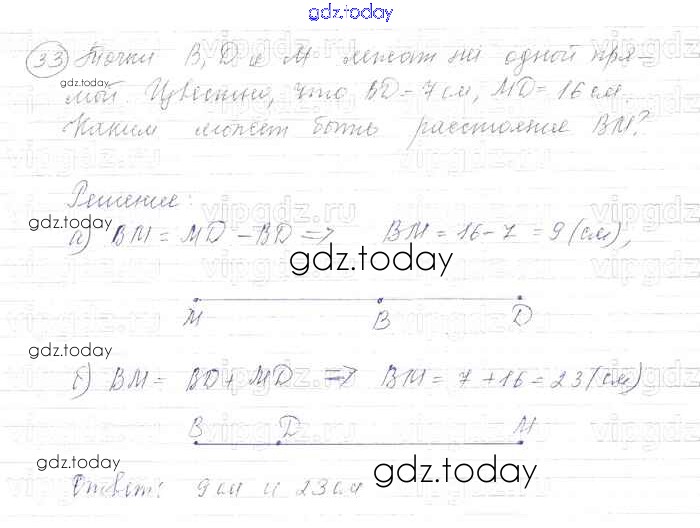 gdz.today
33 Точки B, D и M лежат на одной пря-
gdz.today
мой. Известно, что BD = 7 см, MD = 16 см.
Каким может быть расстояние BM?
Решение:
gdz.today
а) BM = MD - BD => BM = 16 - 7 = 9 (см),
gdz.today
M B D
gdz.today
б) BM = BD + MD => BM = 7 + 16 = 23 (см)
B D M
gdz.today
gdz.today
Ответ: 9 см и 23 см